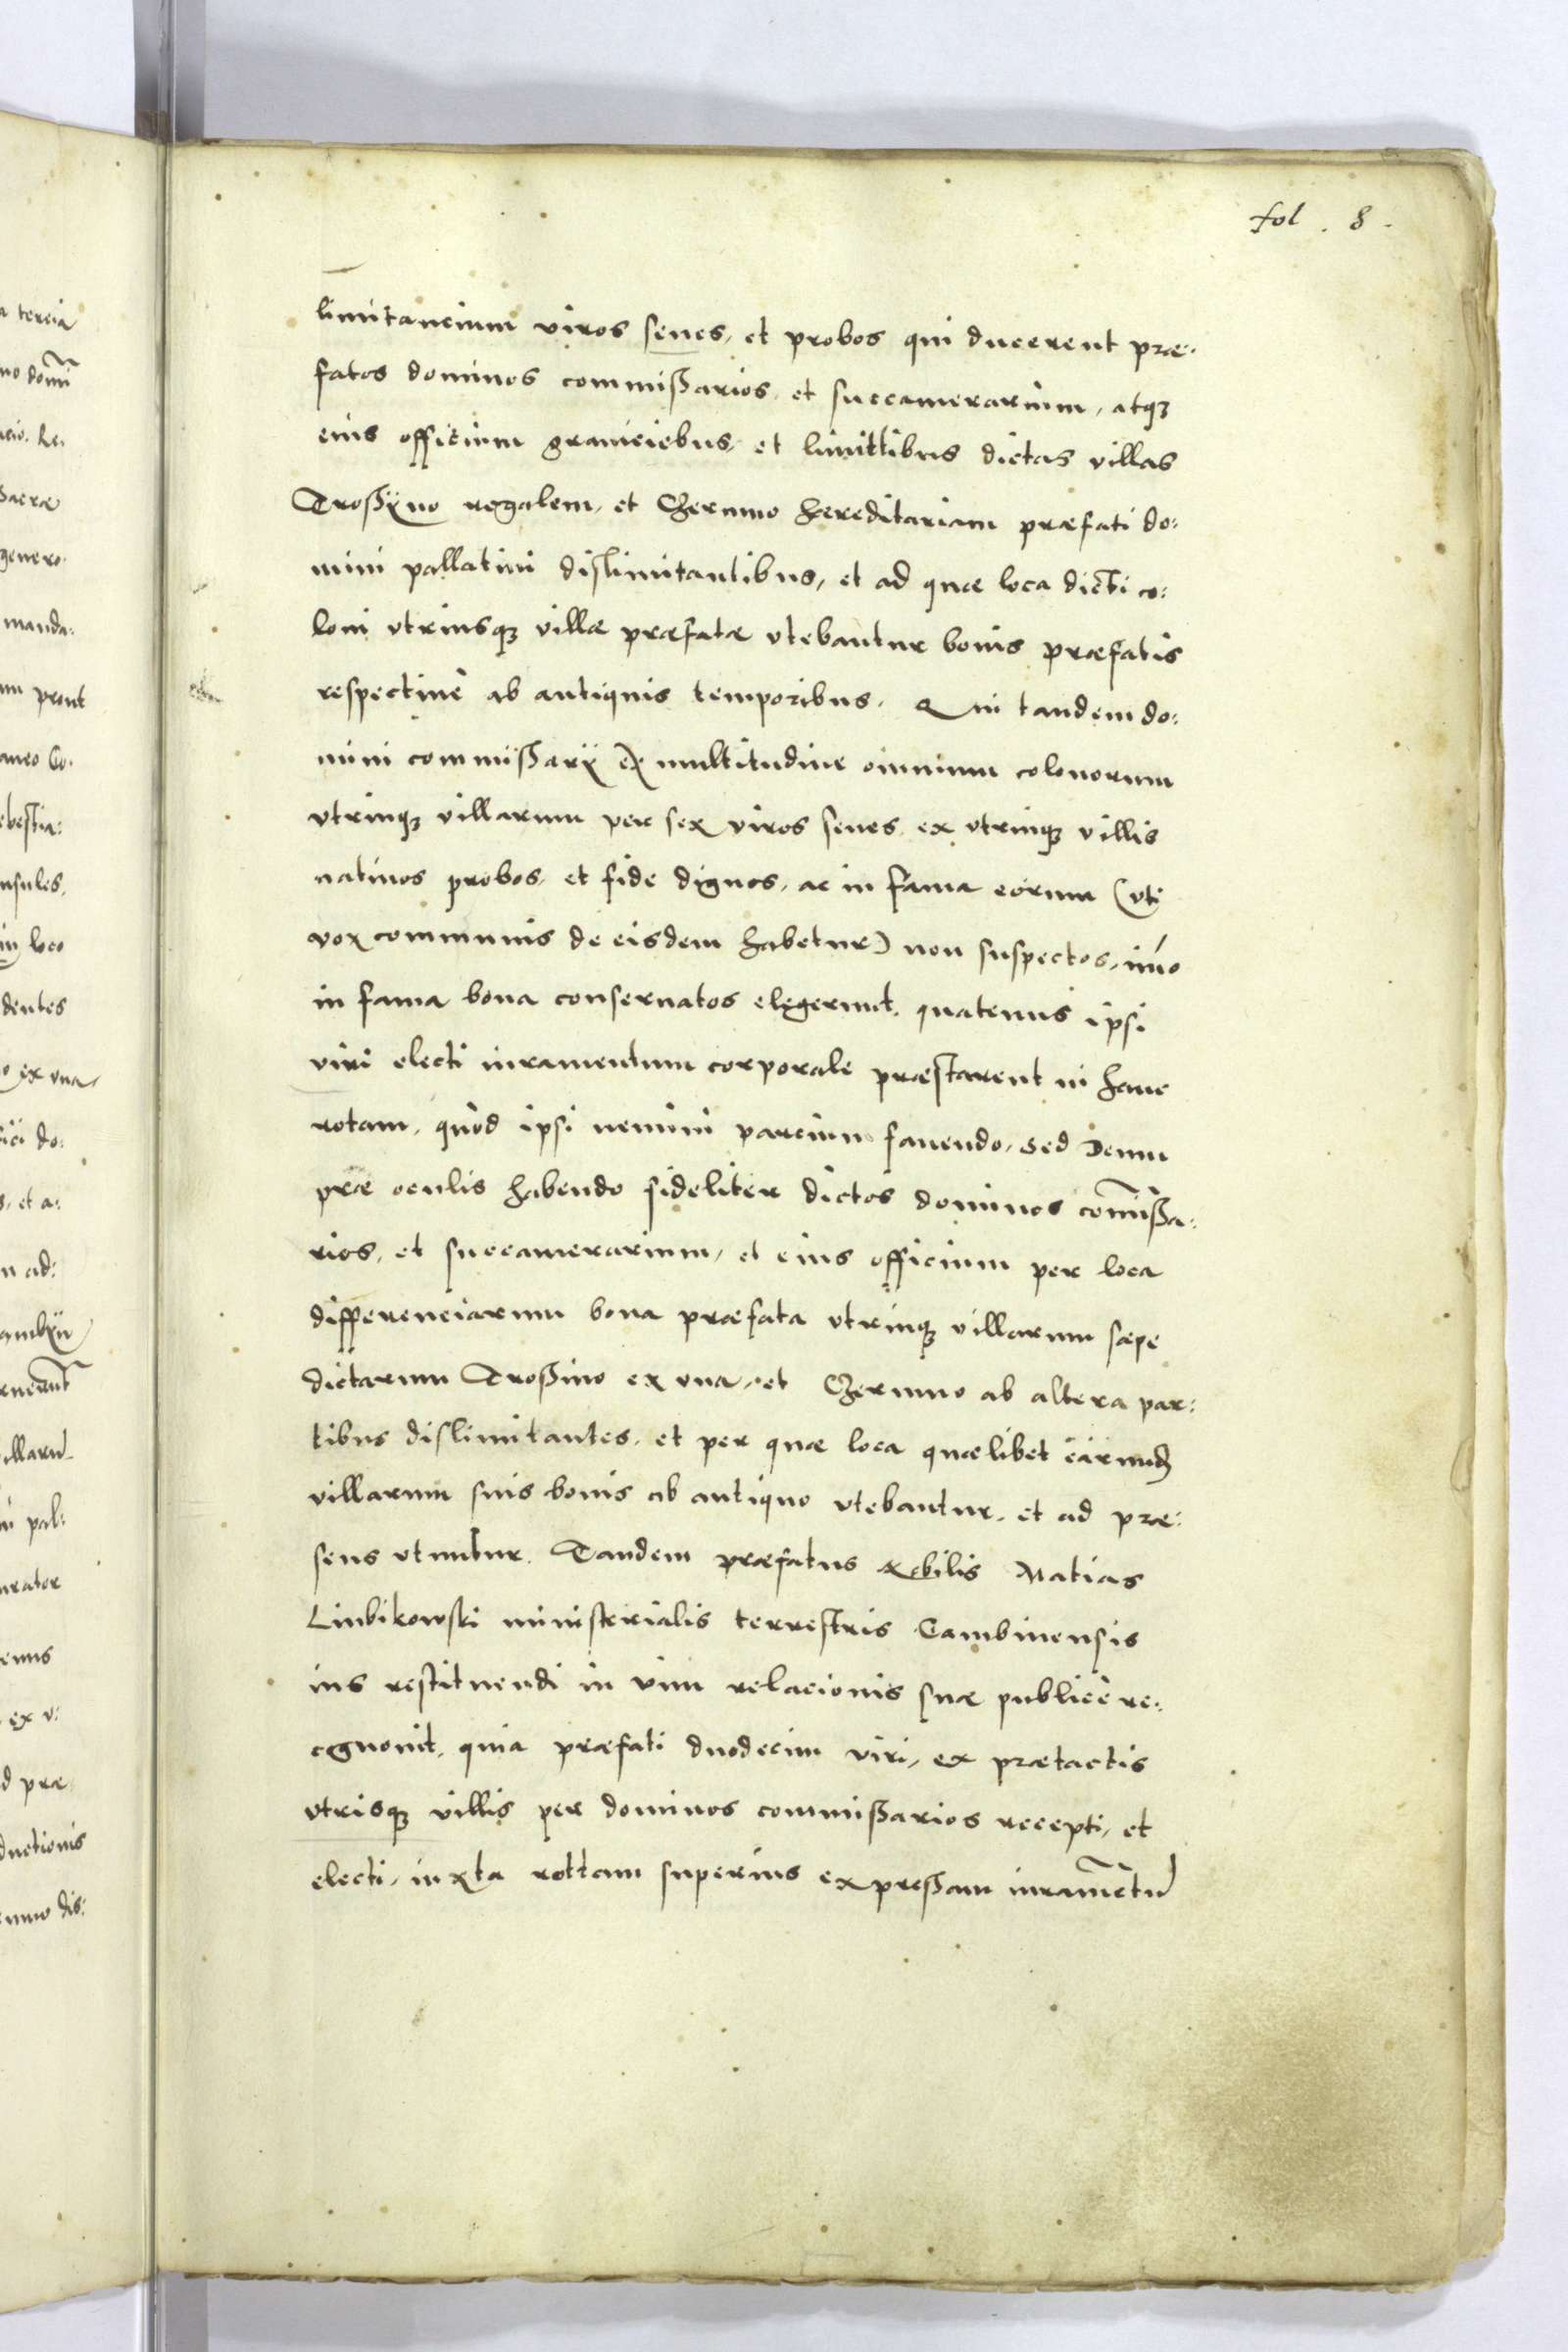 fol. 8.
limitancium viros senes, et probos qui ducerent præ:
fatos dominos commißarios, et succamerarium, atqꝫ
eius officium graniciebus, et limittibus dictas villas
Troßÿno regalem, et Czermno hereditariam præfati do:
mini pallatini dislimitantibus, et ad quæ loca dicti co:
loni vtriusqꝫ villæ præfatæ vtebantur bonis præfatis
respectiuè ab antiquis temporibus. Qui tandem do:
mini commißarÿ ex multitudine omnium colonorum
vtrinqꝫ villarum per sex viros senes ex vtrinqꝫ villis
natiuos probos, et fide dignos, ac in fama eorum (vti
vox communis de eisdem habetur) non suspectos, imo
in fama bona conseruatos elegerunt, quatenus ipsi
viri electi iuramentum corporale præstarent in hanc
rotam, quòd ipsi nemini parcium fauendo, sed Deum
præ oculis habendo fideliter dictos dominos com̃ißa:
rios, et succamerarium, et eius officium per loca
differenciarum bona præfata vtrinqꝫ villarum sæpe
dictarum Troßino ex vna, et Czermno ab altera par:
tibus dislimitantes, et per quæ loca quælibet earund
villarum suis bonis ab antiquo vtebantur, et ad præ:
sens vtuntur. Tandem præfatus Nobilis Matias
Liubikowski ministerialis terrestris Gambinensis
ius restituendi in vim relacionis suæ publicè re:
cognouit, quia præfati duodecim viri, ex prætactis
vtrisqꝫ villis per dominos commißarios recepti, et
electi, iuxta rottam superius expreßam iuram̃etũ